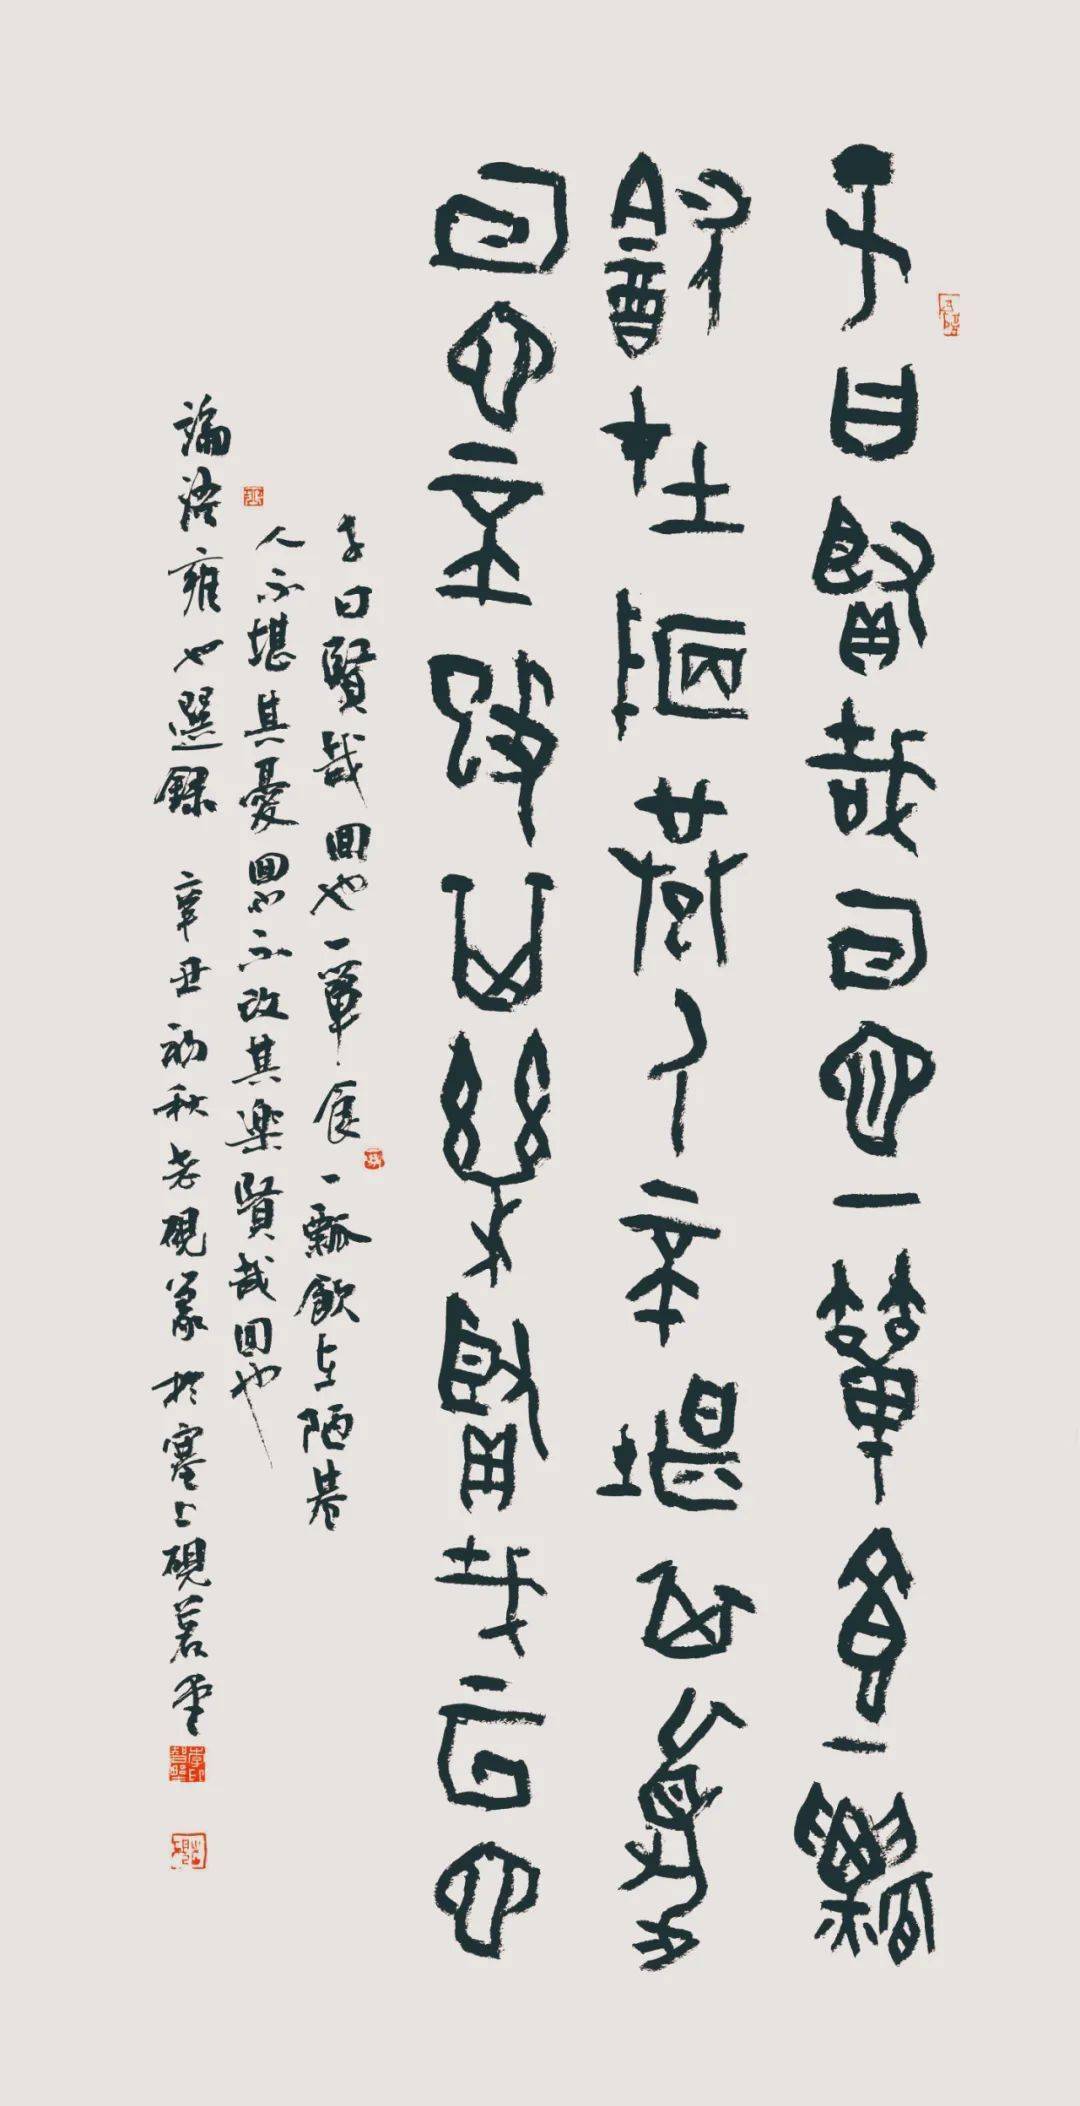 子曰賢哉回也一簞食一瓢
飲在陋巷人不堪其憂
回也不改其樂賢哉回也
子曰賢哉回也一簞食一瓢飲在陋巷
人不堪其憂回也不改其樂賢哉回也
論語雍也選錄 辛丑初秋老硯篆於塞上硯若堂